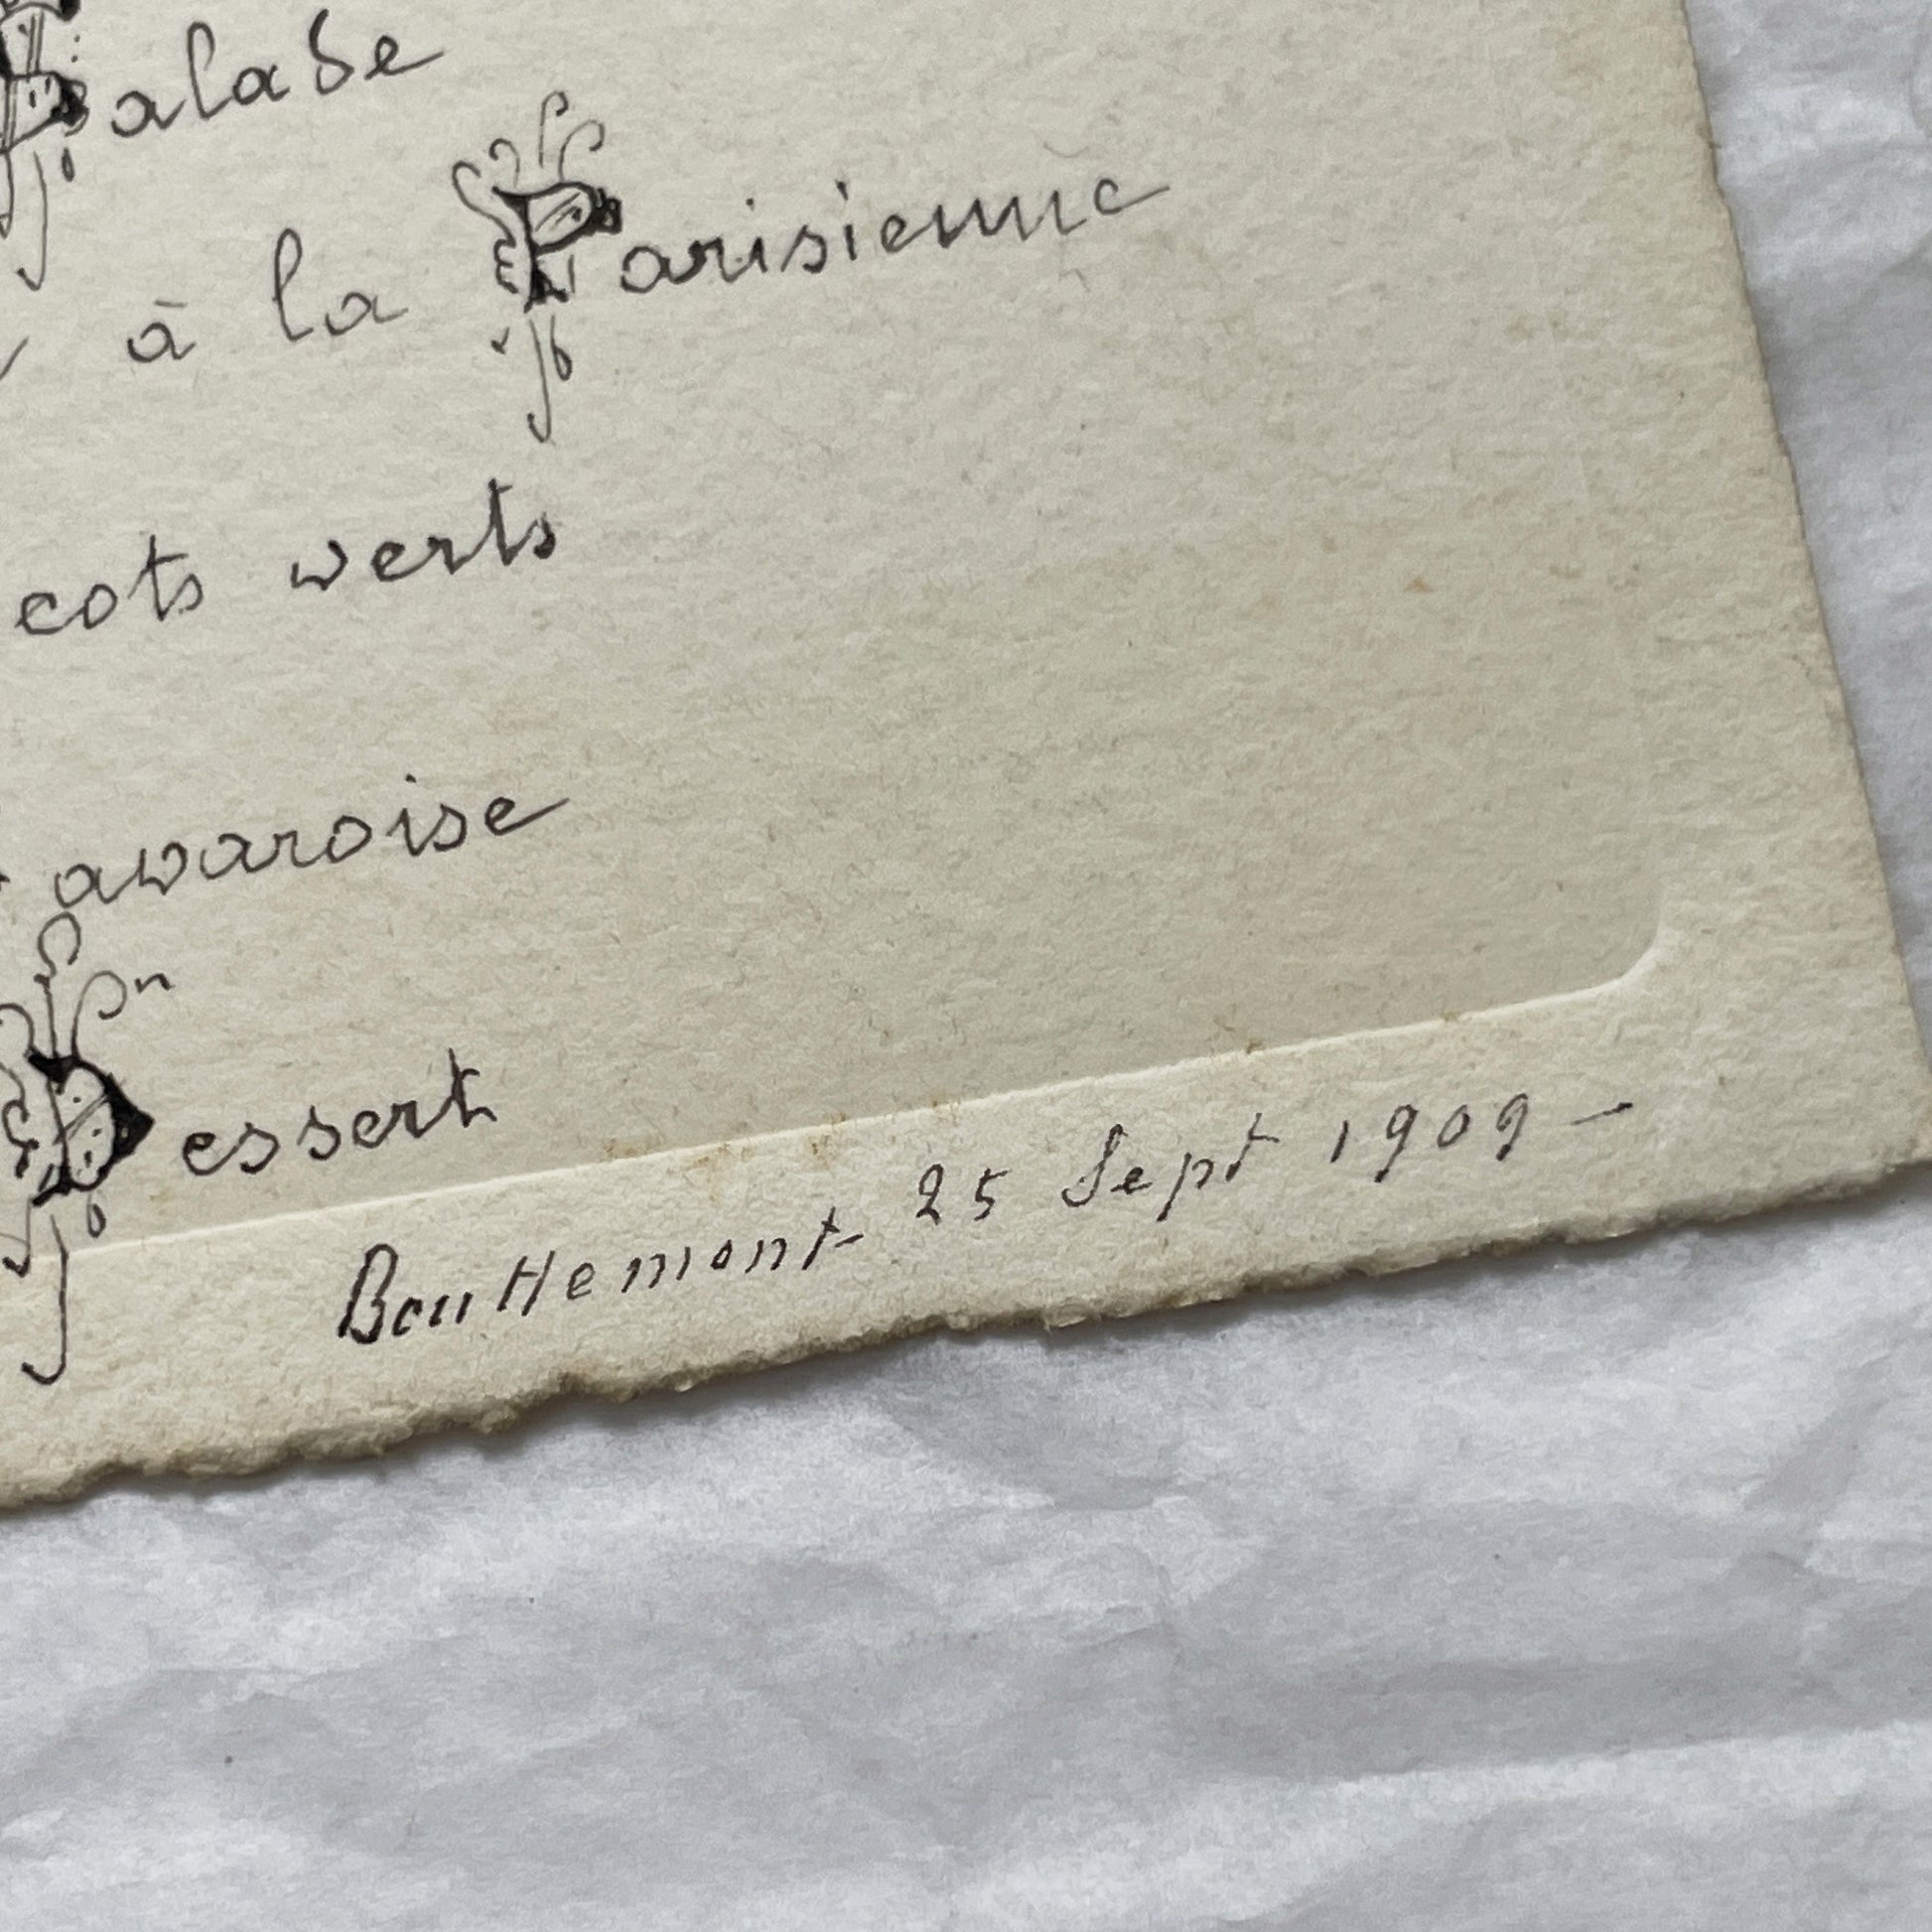 Salade
à la Parisienne
cots verts
avaroise
Dessert
Bouttemont 25 Sept 1909 -